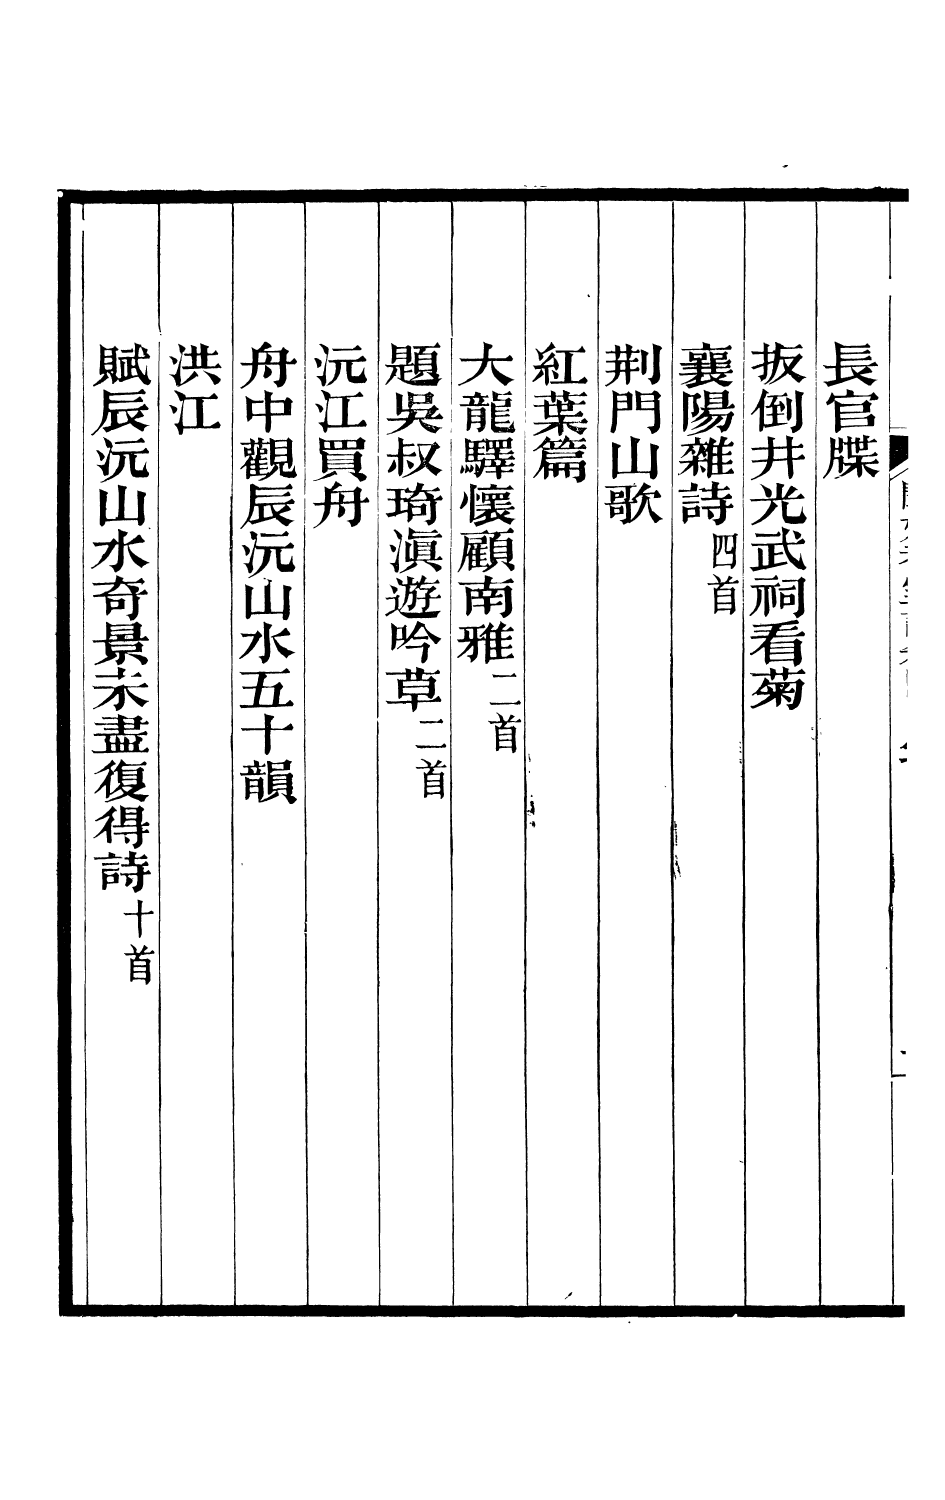 長官牒
扳倒井光武祠看菊
襄陽雜詩四首
荆門山歌
紅葉篇
大龍驛懷顧南雅二首
題吳叔琦滇遊吟草二首
沅江買舟
舟中觀辰沅山水五十韻
洪江
賦辰沅山水奇景未盡復得詩十首